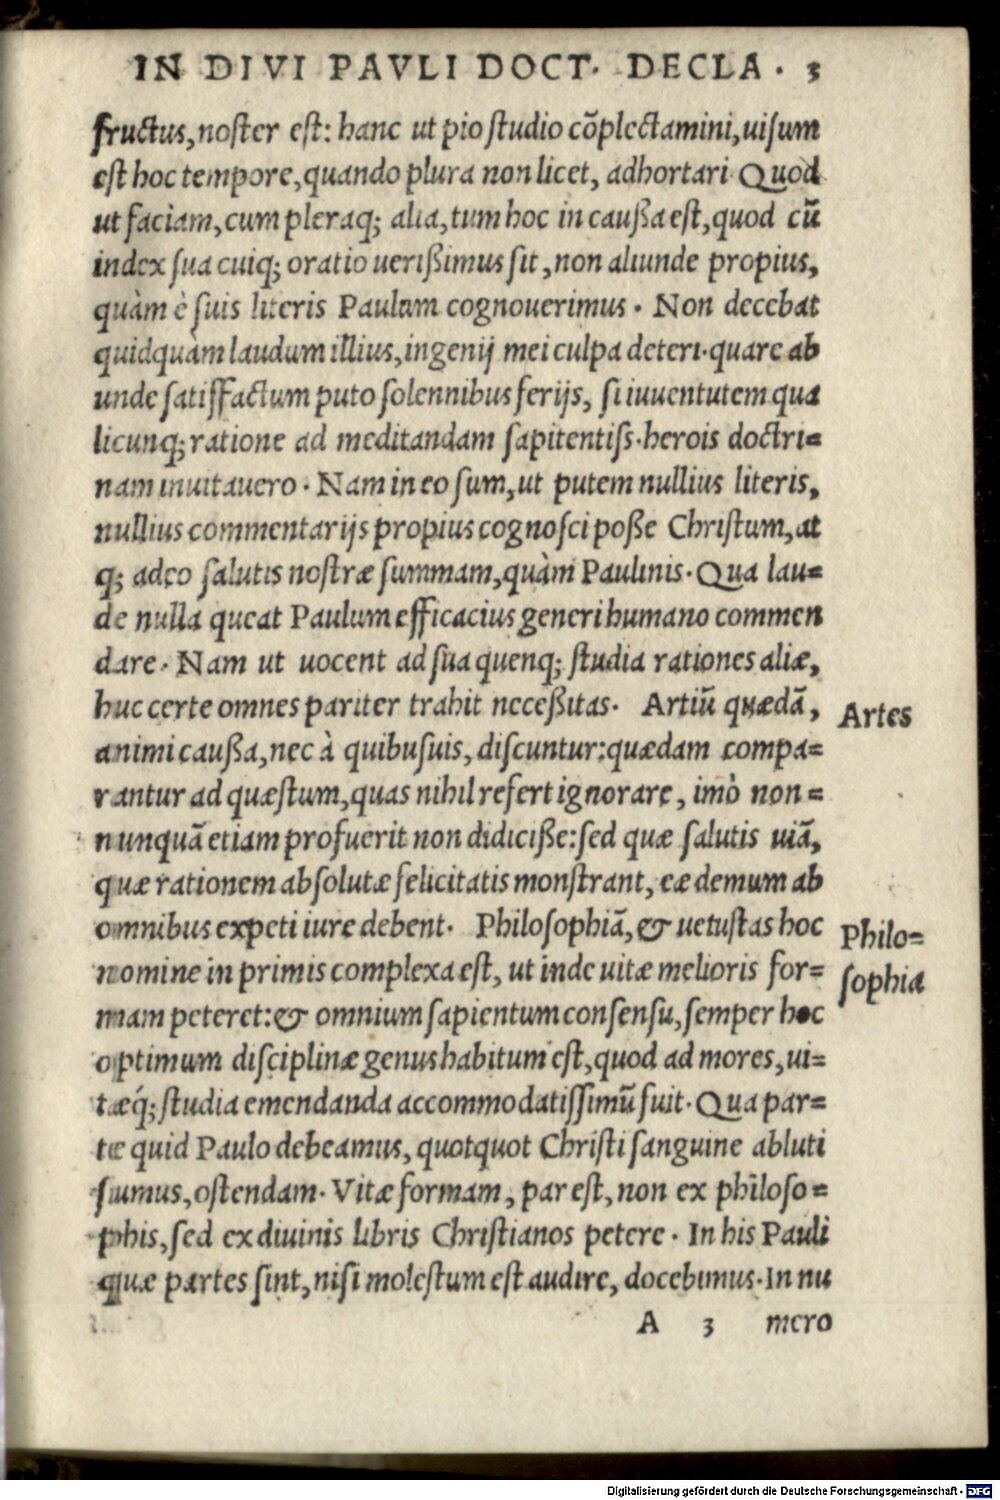 IN DIVI PAVLI DOCT. DECLA. 3
fructus, noster est: hanc ut pio studio cõplectamini, uisum
est hoc tempore, quando plura non licet, adhortari Quod
ut faciam, cum pleraq; alia, tum hoc in caußa est, quod cũ
index sua cuiq; oratio uerißimus sit, non aliunde propius,
quàm è suis literis Paulum cognouerimus. Non decebat
quidquàm laudum illius, ingenij mei culpa deteri. quare ab
unde satisfactum puto solennibus ferijs, si iuuentutem qua
licunq; ratione ad meditandam sapitentiss. herois doctri=
nam inuitauero. Nam in eo sum, ut putem nullius literis,
nullius commentarijs propius cognosci poße Christum, at
q; adeo salutis nostræ summam, quàm Paulinis. Qua lau=
de nulla queat Paulum efficacius generi humano commen
dare. Nam ut uocent ad sua quenq; studia rationes aliæ,
huc certe omnes pariter trahit neceßitas. Artiũ quædã,
animi caußa, nec à quibusuis, discuntur: quædam compa=
rantur ad quæstum, quas nihil refert ignorare, imò non=
nunquã etiam profuerit non didiciße: sed quæ salutis uiã,
quæ rationem absolutæ felicitatis monstrant, eæ demum ab
omnibus expeti iure debent. Philosophiã, & uetustas hoc
nomine in primis complexa est, ut inde uitæ melioris for=
mam peteret: & omnium sapientum consensu, semper hoc
optimum disciplinæ genus habitum est, quod ad mores, ui=
tæq́; studia emendanda accommodatissimũ fuit. Qua par=
te quid Paulo debeamus, quotquot Christi sanguine abluti
sumus, ostendam. Vitæ formam, par est, non ex philoso=
phis, sed ex diuinis libris Christianos petere. In his Pauli
quæ partes sint, nisi molestum est audire, docebimus. In nu
A 3 mero
Artes
Philo=
sophia
Digitalisierung gefördert durch die Deutsche Forschungsgemeinschaft - DFG